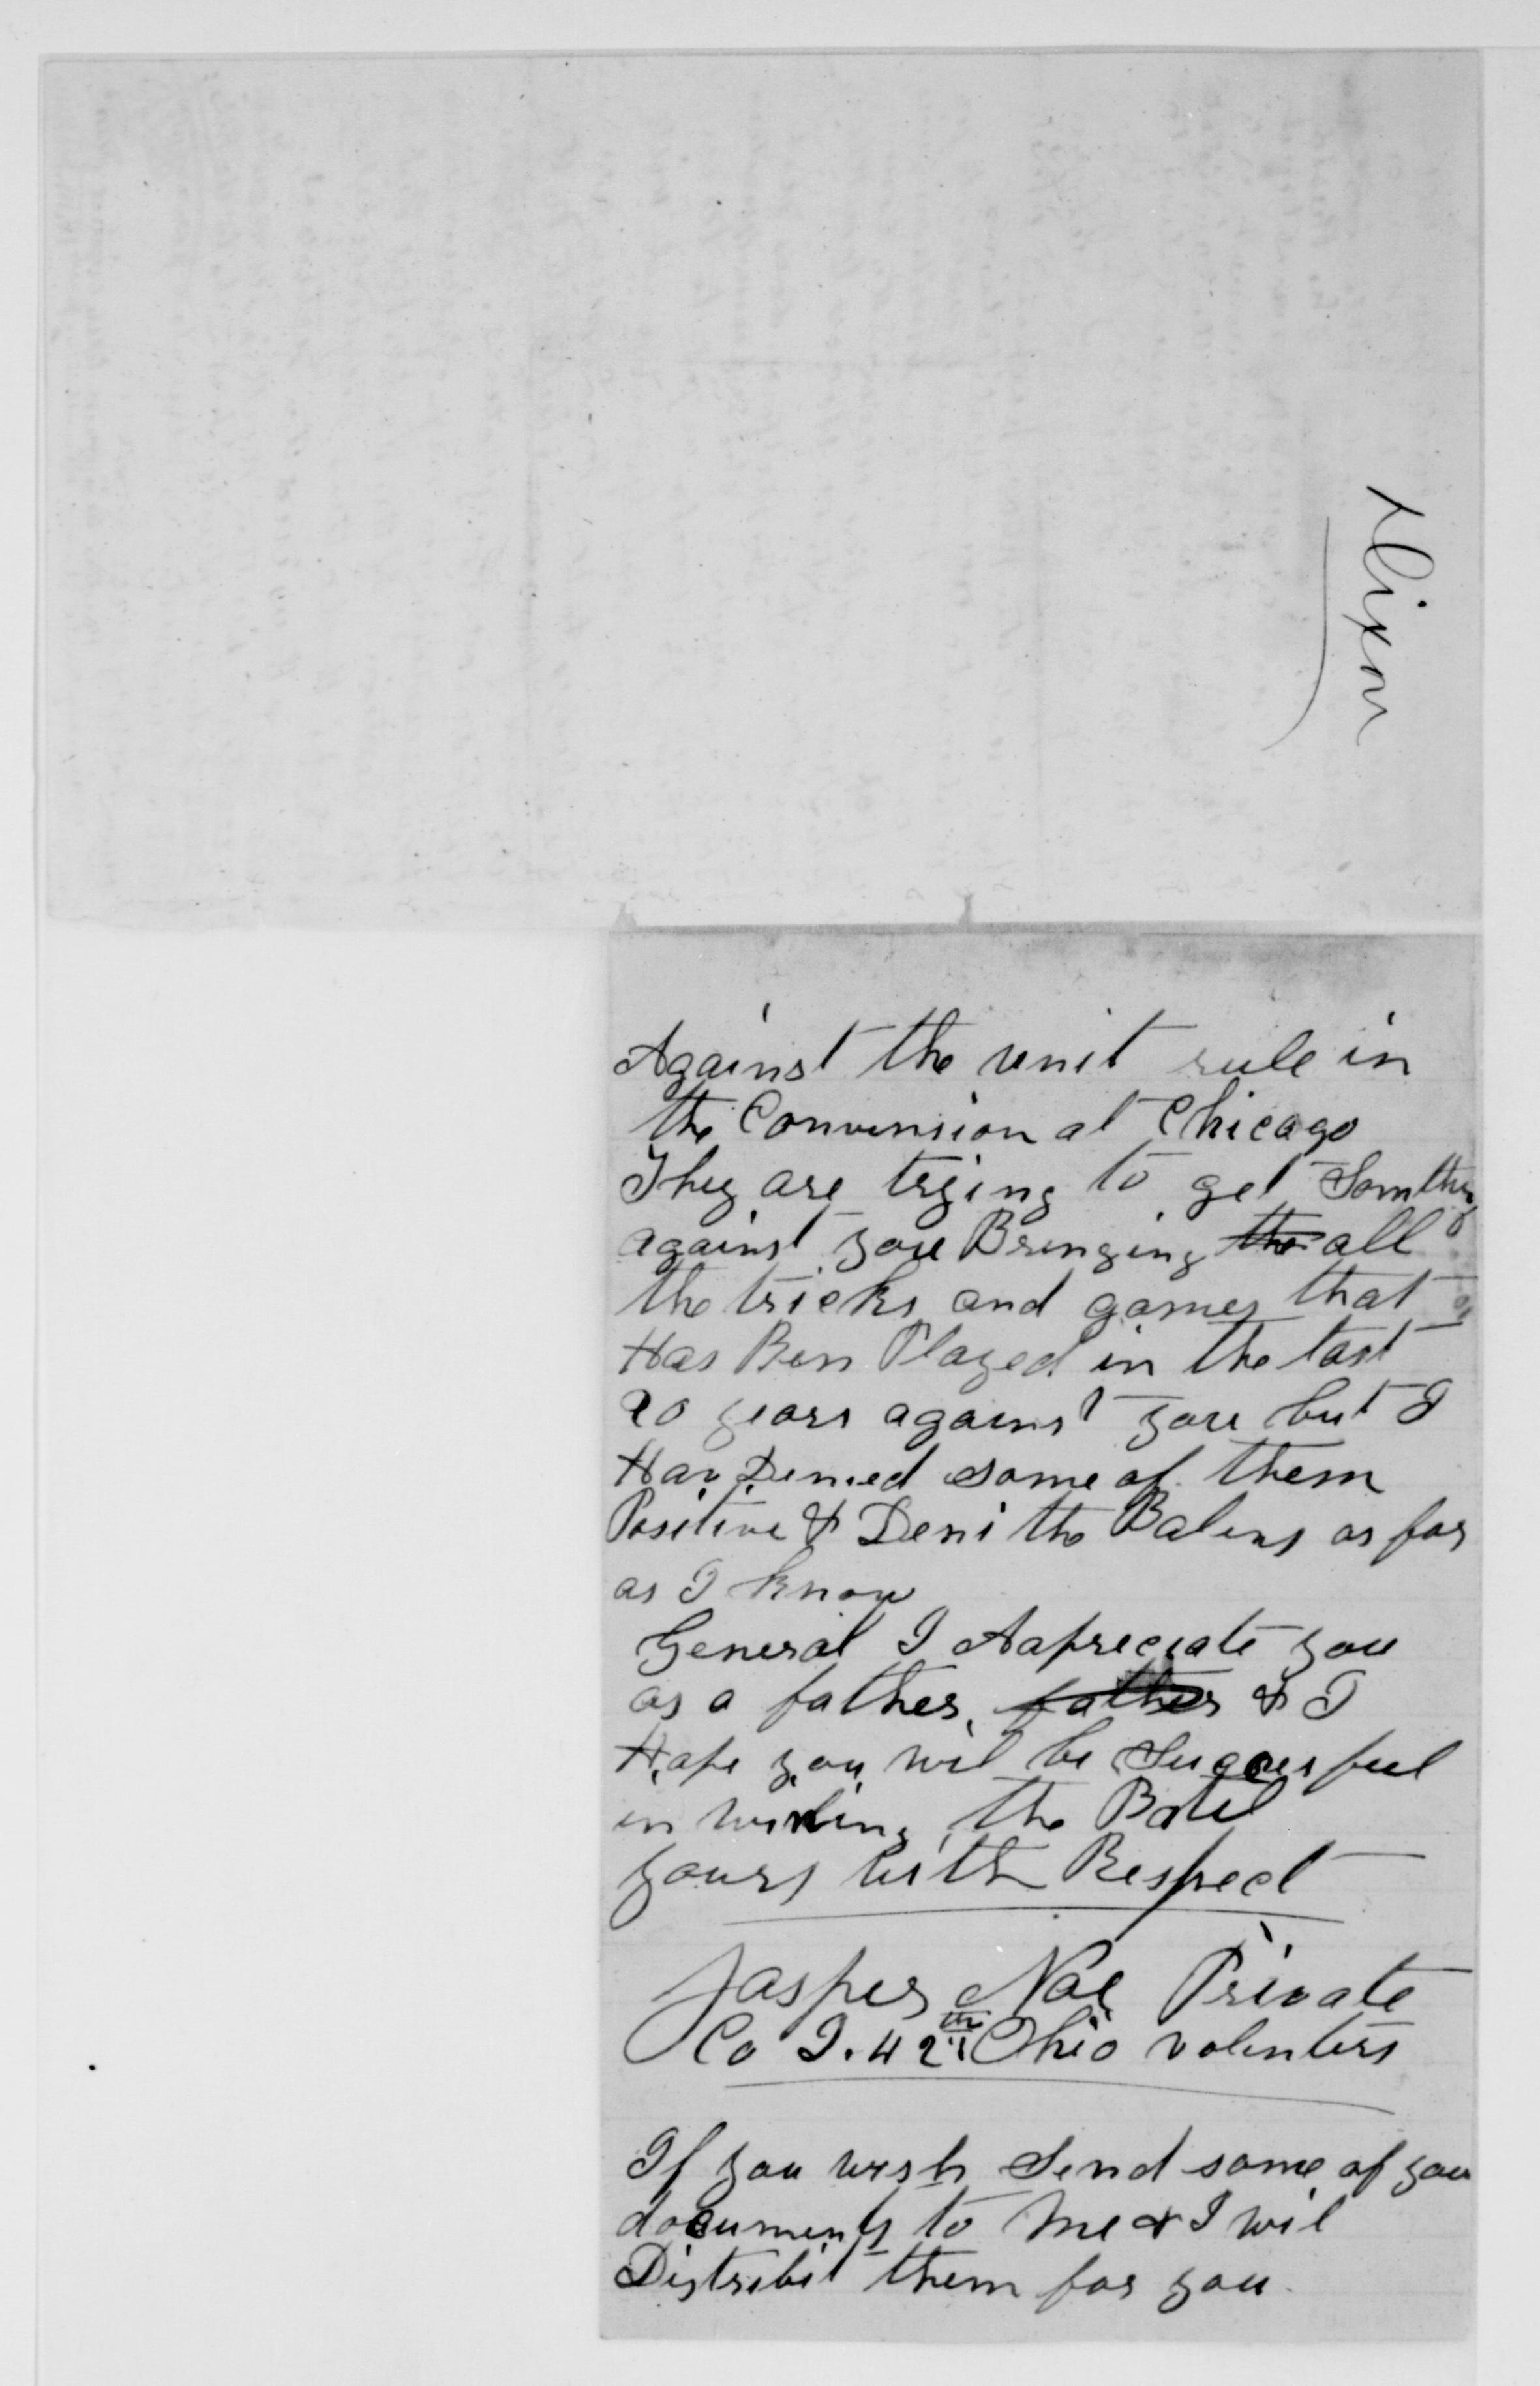 Dixon
Against the unit rule in
the Convension at Chicago
They are trying to get Somthing
against you Bringing the all
the tricks and games that
Has Ben Played in the last
20 years against you but I
Hav Denied some of them
Positive & Deni the Balens as far
as I know
General I Aapreciate you
as a father, father & I
Hope you wil be Succesful
in wining the Batel
yours with Respect
Jasper Noe Private
Co I. 42th Ohio volenters
If you wish Send some of you
documents to Me & I wil
Distribit them for you.